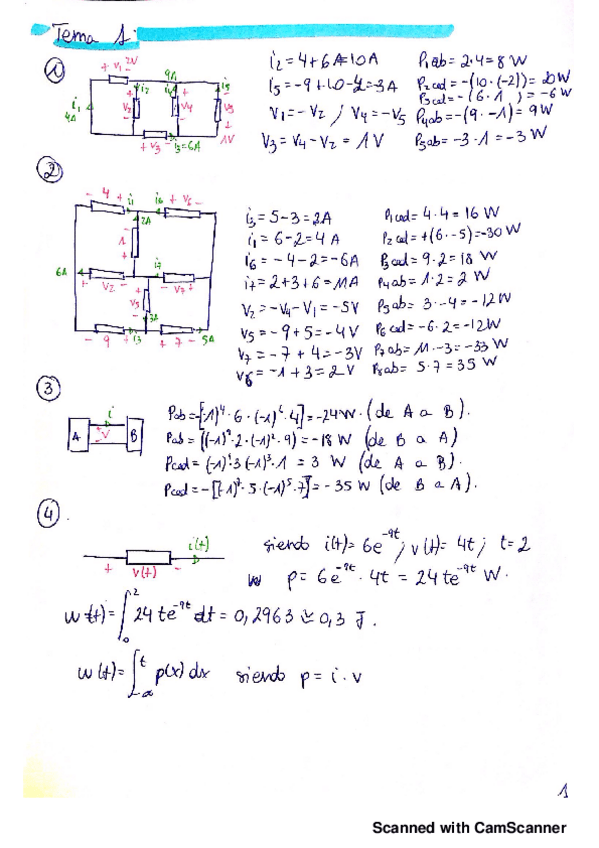 Tema 1:
1
+ v1 2V -
i1
4A
v2
i2
9A
i4
v4
i5
v3
1V
+ v3 -
i3=6A
i2 = 4+6A=10A
i5 = -9+10-4=-3A
V1=-V2 / V4=-V5
V3=V4-V2 = 1V
P1ab = 2·4=8 W
P2ced = -(10·(-2))= 20W
P3ced = -(6·1)= -6 W
P4ab = -(9·-1)= 9W
P5ab = -3·1=-3 W
2
- 4 +
i1
i6
+ v6 -
2A
1
6A
+ v2 -
i7
- v7 +
v5
3A
- 9 +
i3
+ 7 -
5A
i3 = 5-3=2A
i1 = 6-2= 4 A
i6 = -4-2=-6A
i7 = 2+3+6=11A
V2 = -V4-V1=-5V
V5 = -9+5=-4V
V7 = -7+4=-3V
V6 = -1+3=2V
P1ced = 4·4=16 W
P2ced = +(6·-5)=-30W
P3ced = 9·2=18 W
P4ab = 1·2=2 W
P5ab = 3·-4=-12W
P6ced = -6·2=-12W
P7ab = 11·-3=-33W
P8ab = 5·7=35 W
3
A
i
+ V -
B
Pab=-[(-1)⁴·6·(-1)⁶·4]=-24W. (de A a B).
Pced = (-1)⁴·3(-1)³·1 = 3 W (de A a B).
Pced = -[(-1)²·5·(-1)⁵·7]=-35W (de B a A).
4
i(t)
+ v(t) -
siendo i(t)= 6e⁻⁹ᵗ; v(t)= 4t; t=2
p= 6e⁻⁹ᵗ·4t = 24te⁻⁹ᵗ W.
w(t)= ∫₀² 24te⁻⁹ᵗ dt = 0,2963 ≃ 0,3 J.
w(t)= ∫₋∞ᵗ p(x)dx siendo p= i·v
1
Scanned with CamScanner